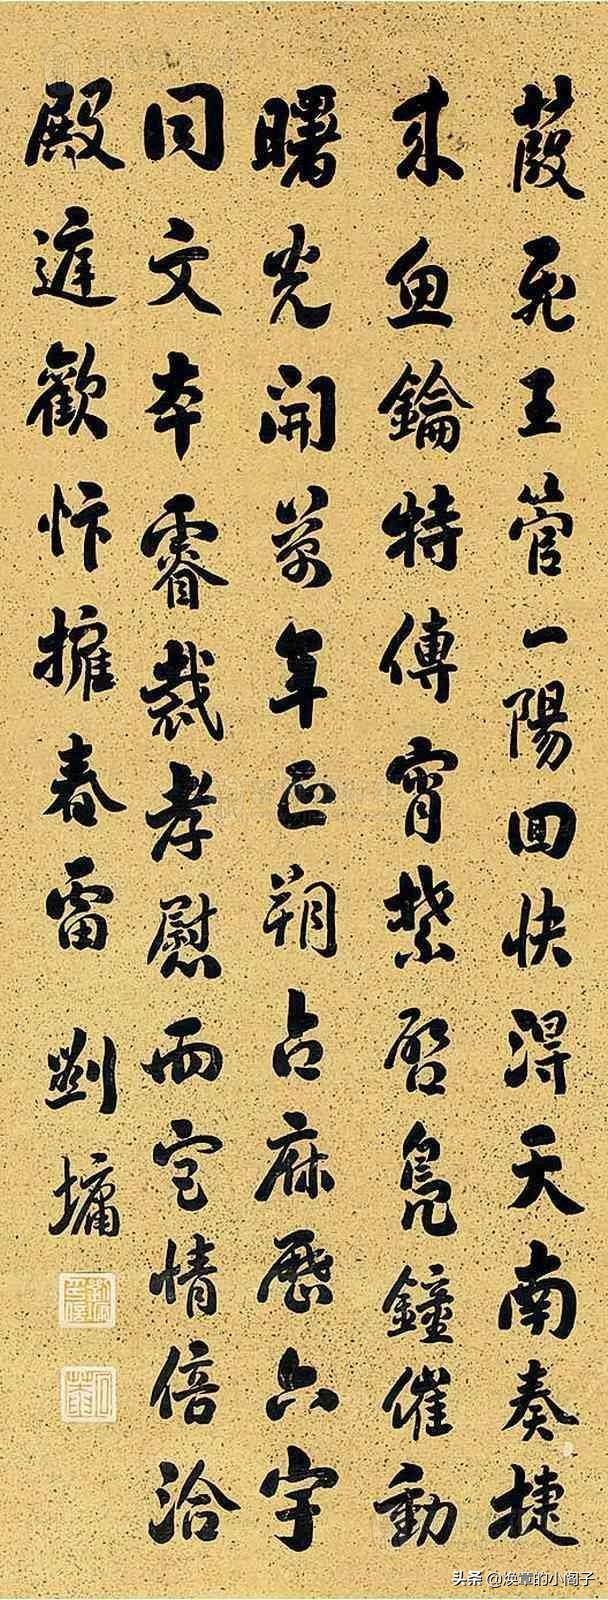 葭飛玉管一陽回快得天南奏捷
來魚鑰特傳宵禁啓鳧鐘催動
曙光開萬年正朔占庥歷六宇
同文本睿裁孝慰兩宮情倍洽
殿筵歡忭擁春雷 劉墉
石菴
头条 @焕章的小阁子